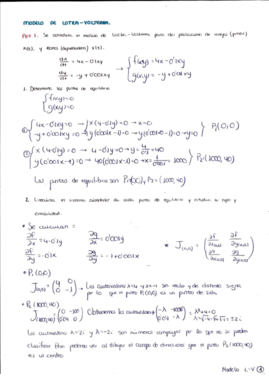 MODELO DE LOTKA-VOLTERRA.
Part 1. Se considera el modelo de Lotka-Volterra para dos poblaciones de (presas)
y (depredadores)
dx/dt = 4x - 0'1xy
dy/dt = -y + 0'001xy
→ { f(x,y) = 4x - 0'1xy
g(x,y) = -y + 0'001xy
1. Determinar los puntos de equilibrio
{ f(x,y)=0
g(x,y)=0
① { 4x - 0'1xy = 0 → x(4-0'1y)=0 → x=0
-y + 0'001xy = 0 → y(0'001x-1)=0 → → y=0 } P₁(0,0)
② { x(4-0'1y)=0 → 4-0'1y=0 → y = 4/0'1 = 40
y(0'001x-1)=0 → 40(0'001x-1)=0 → x = 1/0'001 = 1000 } P₂(1000,40)
Los puntos de equilibrio son P₁(0,0), P₂ = (1000,40)
2. el sistema alrededor de cada punto de equilibrio y estudiar su tipo y
estabilidad.
* Se calculan:
∂f/∂x = 4-0'1y ∂g/∂x = 0'001y
∂f/∂y = -0'1x ∂g/∂y = -1+0'001x
* P₁(0,0)
J(0,0) = (4 0
0 -1) → Los autovalores λ=4 y λ=-1 son reales y de distinto signo
por lo que el punto P₁(0,0) es un punto de silla.
* P₂(1000,40)
J(1000,40) = (0 -100
0'04 0) Obtenemos los autovalores (-λ -100
0'04 -λ) = λ²+4=0
Los autovalores λ=2i y λ=-2i son números complejos por lo que no se pueden
clasificar. Pero podemos ver al dibujar el campo de direcciones que el punto P₂(1000,40)
es un centro.
Modelo L-V ①